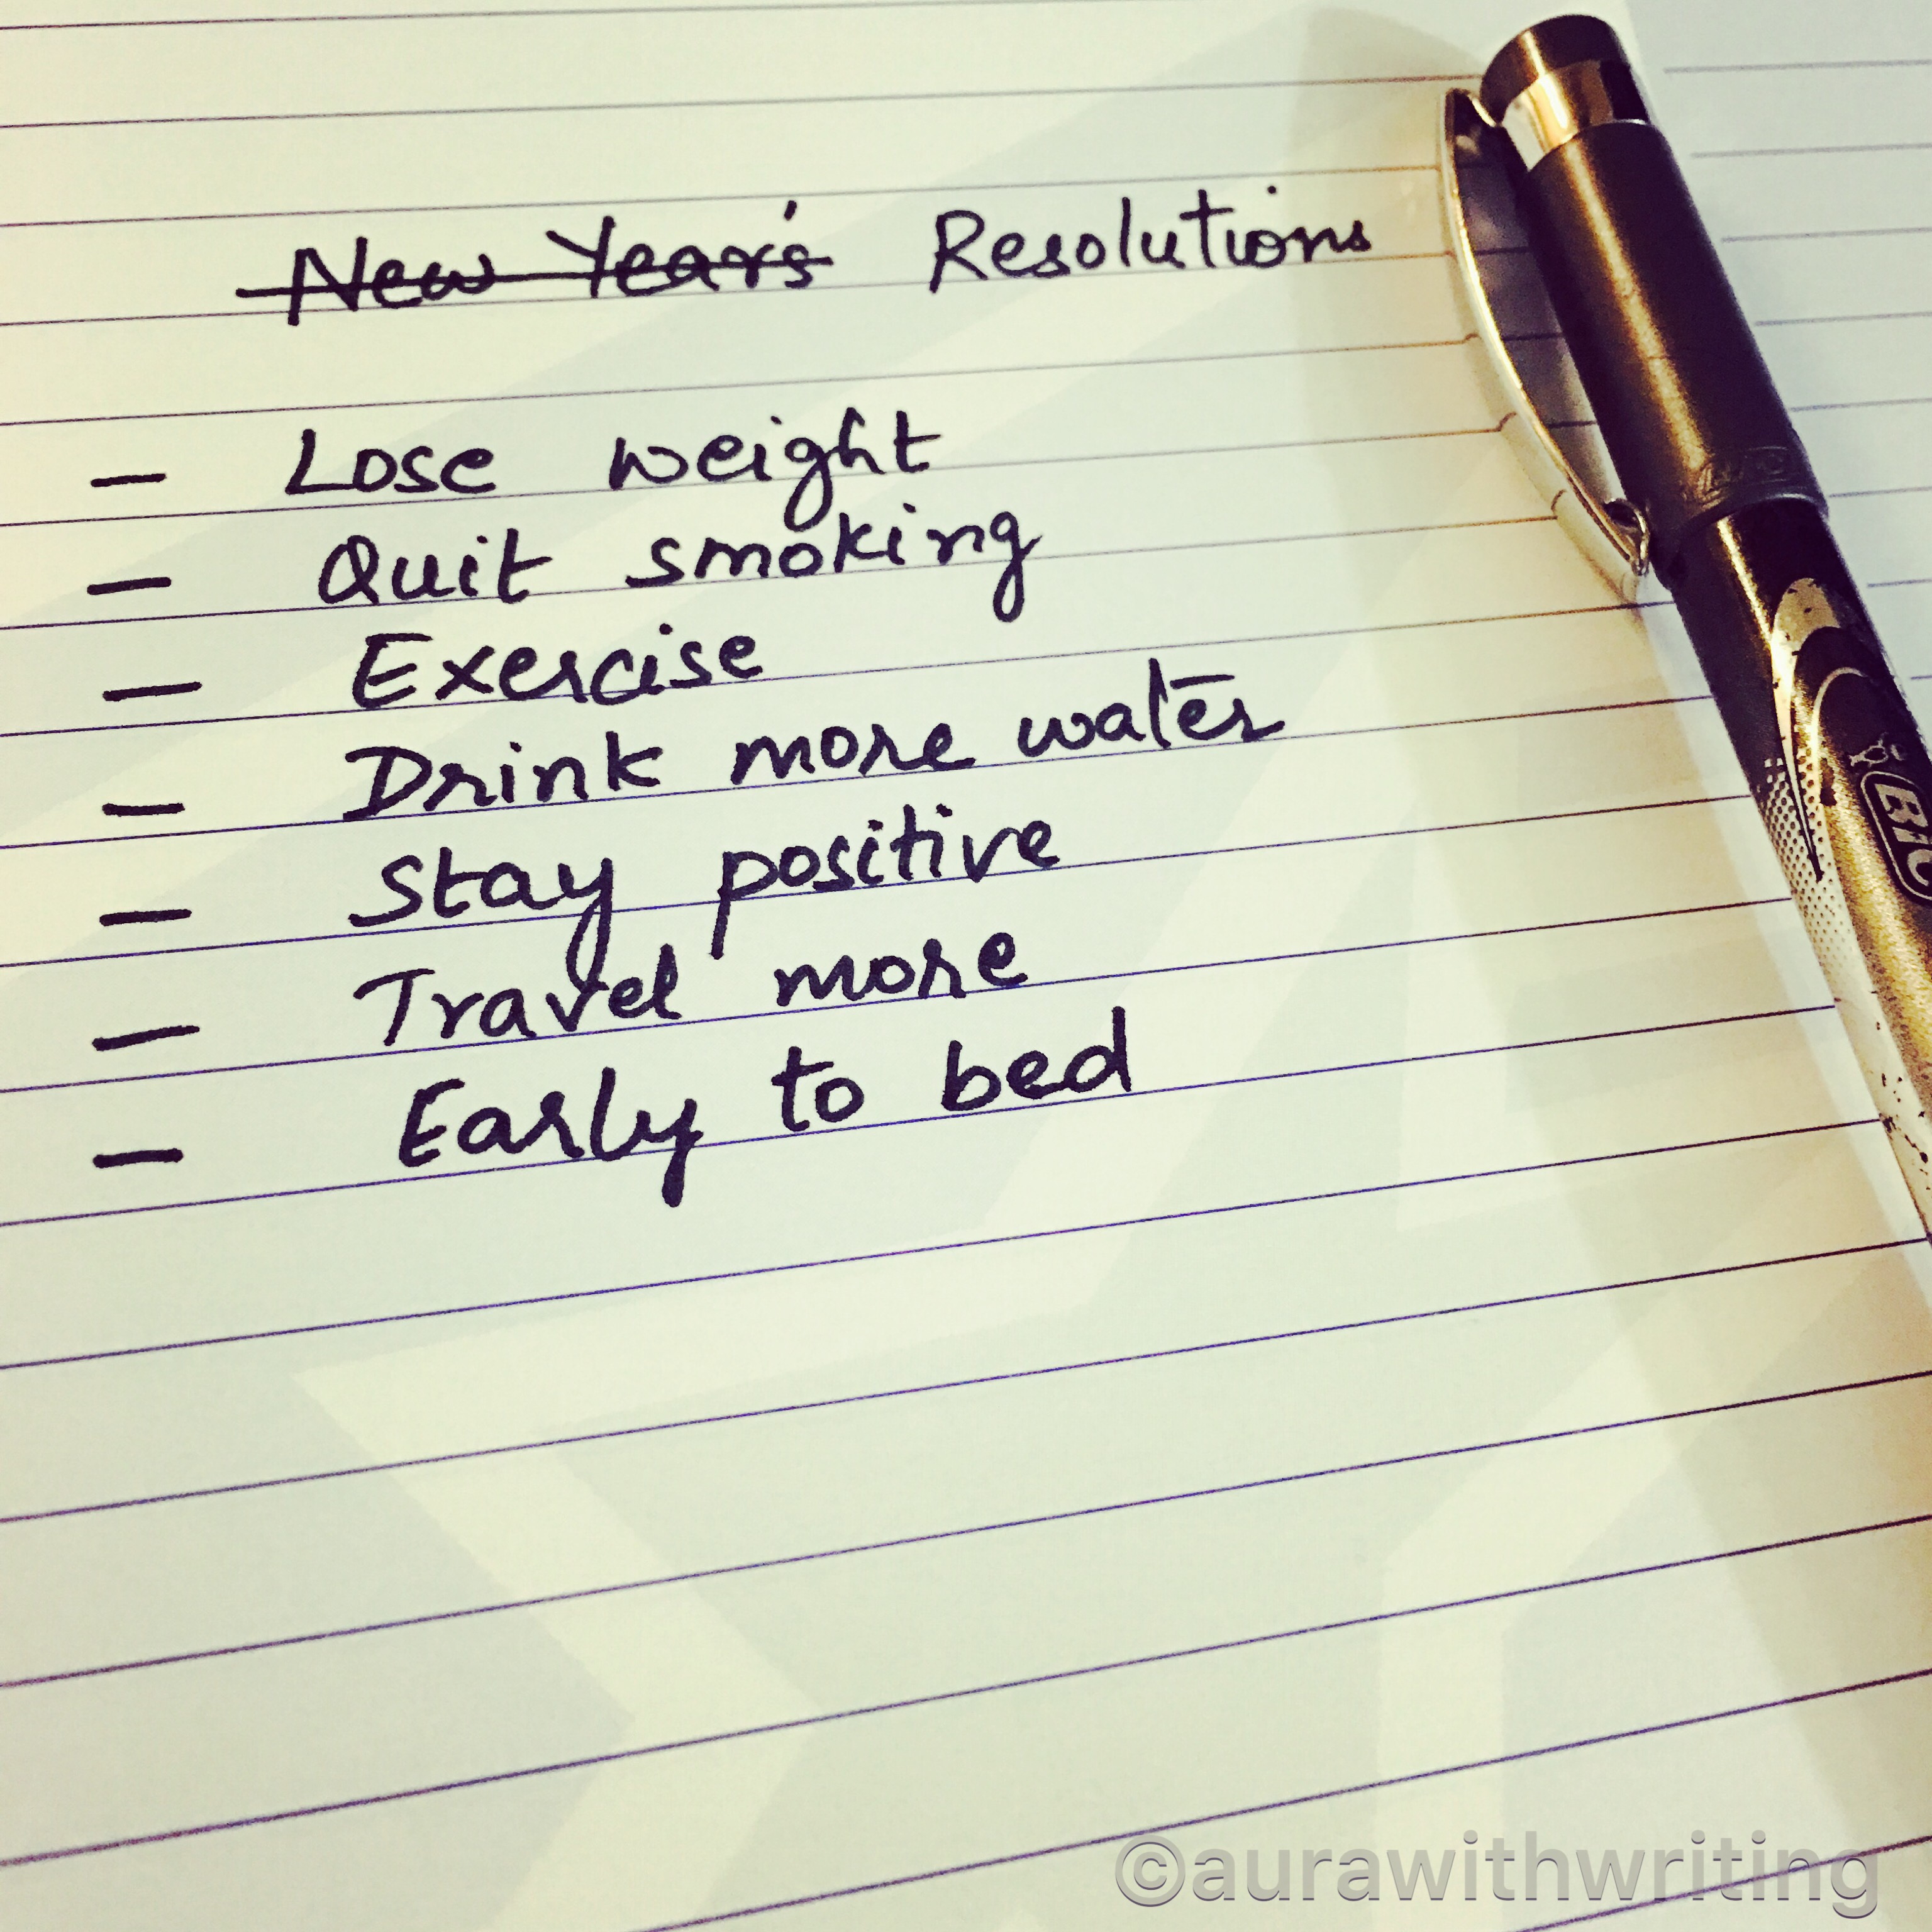 New Year's Resolutions
- Lose weight
- Quit smoking
- Exercise
- Drink more water
- Stay positive
- Travel more
- Early to bed
BIC
©aurawithwriting